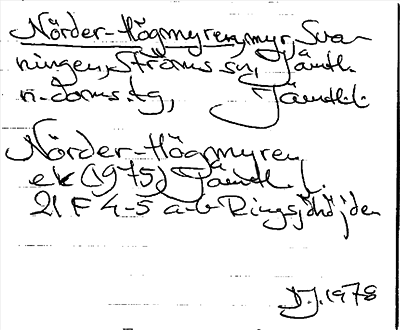 Nörder-Högmyren, myr, Sva-
ningen, Ströms sn, Jämtl.
n. doms.tg, Jämtl.l.
Nörder-Högmyren
ek (1975) Jämtl. l.
21 F 4-5 a-b Ringsjöhöjden
D.J. 1978